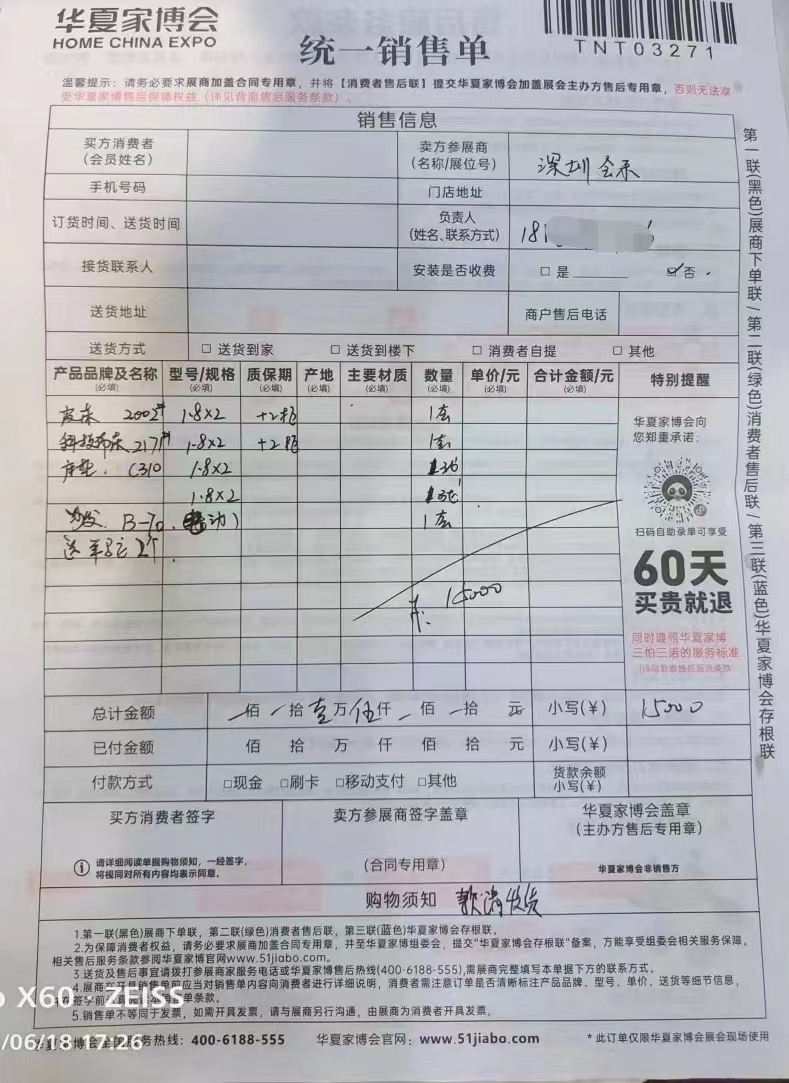 华夏家博会
HOME CHINA EXPO
统一销售单
TNT03271
温馨提示：请务必要求展商加盖合同专用章，并将【消费者售后联】提交华夏家博会加盖展会主办方售后专用章，否则无法享
受华夏家博售后保障权益（详见背面售后服务条款）。
销售信息
买方消费者
(会员姓名)
卖方参展商
(名称/展位号)
深圳
手机号码
门店地址
订货时间、送货时间
负责人
(姓名、联系方式)
181
接货联系人
安装是否收费
□是 ☑否
送货地址
商户售后电话
送货方式 □ 送货到家 □ 送货到楼下 □ 消费者自提 □ 其他
产品品牌及名称 型号/规格 质保期 产地 主要材质 数量 单价/元 合计金额/元 特别提醒
(必填) (必填) (必填) (必填) (必填) (必填) (必填) (必填)
皮床 2002# 1.8×2 +2柜 1套
科技布床 217# 1.8×2 +2柜 1套
床垫 C310 1.8×2
1.8×2
沙发 B-70 (电动) 1套
送 2个
共: 15000
华夏家博会向
您郑重承诺：
扫码自助录单可享受
60天
买贵就退
同时遵照华夏家博
三怕三诺的服务标准
总计金额 佰 拾 壹万 伍仟 佰 拾 元 小写(¥) 15000
已付金额 佰 拾 万 仟 佰 拾 元 小写(¥)
付款方式 □现金 □刷卡 □移动支付 □其他 货款余额
小写(¥)
买方消费者签字
卖方参展商签字盖章
华夏家博会盖章
(主办方售后专用章)
请详细阅读单据购物须知，一经签字，
将视同对所有内容均表示同意。
(合同专用章)
华夏家博会非销售方
购物须知 款清发货
1.第一联(黑色)展商下单联，第二联(绿色)消费者售后联，第三联(蓝色)华夏家博会存根联。
2.为保障消费者权益，请务必要求展商加盖合同专用章，并至华夏家博组委会，提交“华夏家博会存根联”备案，方能享受组委会相关服务保障。
相关售后服务条款参阅华夏家博官网www.51jiabo.com。
3.送货及售后事宜请拨打参展商家服务电话或华夏家博售后热线(400-6188-555),需展商完整填写本单据下方的联系方式。
4.展商在开具销售单前应当对销售单内容向消费者进行详细说明，消费者需注意订单是否清晰标注产品品牌、型号、单价、送货等细节信息，
5.销售单不等同于发票，如需开具发票，请与展商另行沟通，由展商为消费者开具发票。
华夏家博会全国服务热线：400-6188-555 华夏家博会官网：www.51jiabo.com *此订单仅限华夏家博会展会现场使用
第一联(黑色)展商下单联/第二联(绿色)消费者售后联/第三联(蓝色)华夏家博会存根联
X60 ZEISS
/06/18 17:26